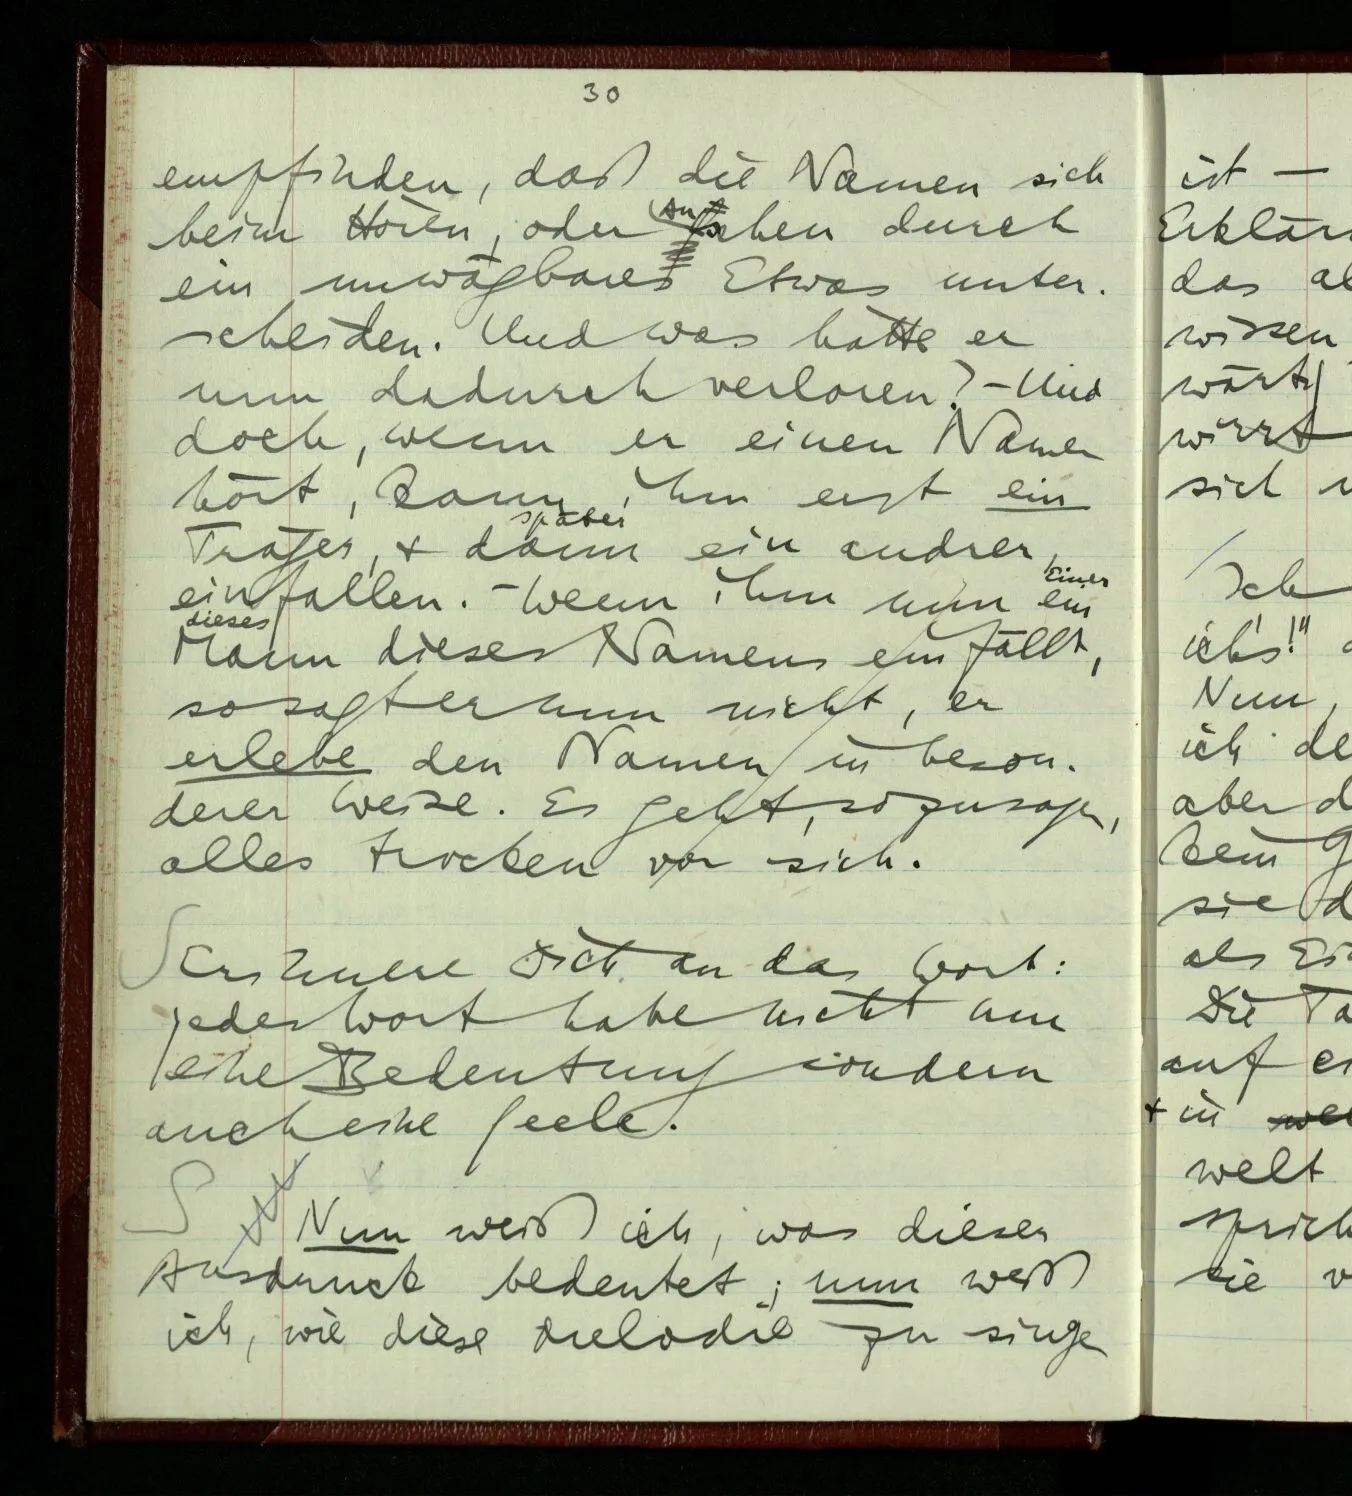 30
empfinden, daß die Namen sich
beim Hören, oder Ansehen durch
ein unwägbares Etwas unter-
scheiden. Und was hätte er
nun dadurch verloren? – Und
doch, wenn er einen Namen
hört, kann ihm erst ein
später
Träger, & dann ein andrer,
einer
einfallen. – Wenn ihm nun ein
dieses
Mann dieses Namens einfällt,
so sagt er nun nicht, er
erlebe den Namen in beson-
derer Weise. Es geht, sozusagen,
alles trocken vor sich.
Erinnere Dich an das Wort:
jedes Wort habe nicht nur
eine Bedeutung sondern
auch eine Seele.
Nun weiß ich, was dieser
Ausdruck bedeutet; nun weiß
ich, wie diese Melodie zu singen
ist –
das
wissen
wirrt
sich
Ich
ich's!"
Nun,
ich
aber
kein
sie
als
Die
auf
+ in
welt
sie